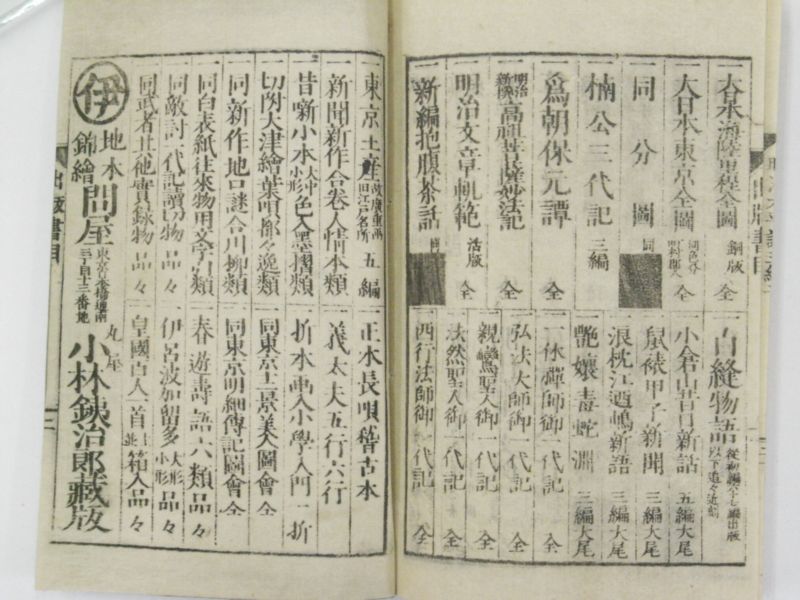 大日本海陸里程全圖 銅版 全
大日本東京全圖 全
同分圖 同
楠公三代記 三編
爲朝保元譚 全
明治新撰 高祖菩薩妙法記 全
明治文章軌範 活版 全
新編抱腹茶話
白縫物語
小倉山昔日新話 五編大尾
鼠裱甲子新聞 三編大尾
浪枕江遊嶋新語 三編大尾
艶孃毒蛇淵 三編大尾
一休禪師御一代記 全
弘法大師御一代記 全
親鸞聖人御一代記 全
法然聖人御一代記 全
西行法師御一代記 全
東京土産 五編
新聞新作合卷人情本類
昔噺小本 色入墨摺類
切附大津繪葉唄都々逸類
同新作地口謎合川柳類
同白表紙往來物用文字引類
同敵討一代記讀切物 品々
同武者其他實録物 品々
正本長唄稽古本
義太夫五行六行
折本画入小學入門一折
同東京土景美人圖會 全
同東京明細傳記圖會 全
春遊壽語六類品々
伊呂波加留多 大形小形 品々
皇國百人一首 箱入品々
伊 地本錦繪問屋
丸屋 小林鉄治郎藏版
出版書目